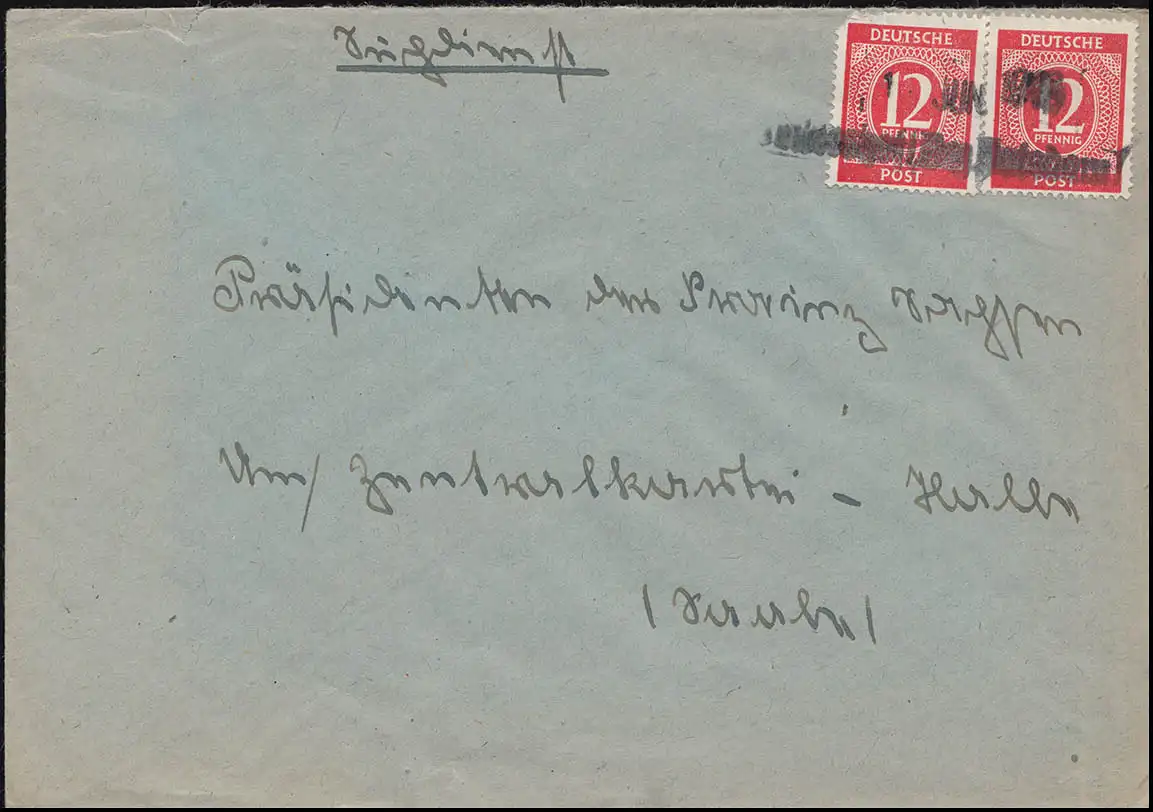 Suchdienst
DEUTSCHE
12
PFENNIG
POST
DEUTSCHE
12
PFENNIG
POST
JUN. 1946
Präsidenten der Provinz Sachsen
Um/ Zentralkartei – Halle
/Saale/